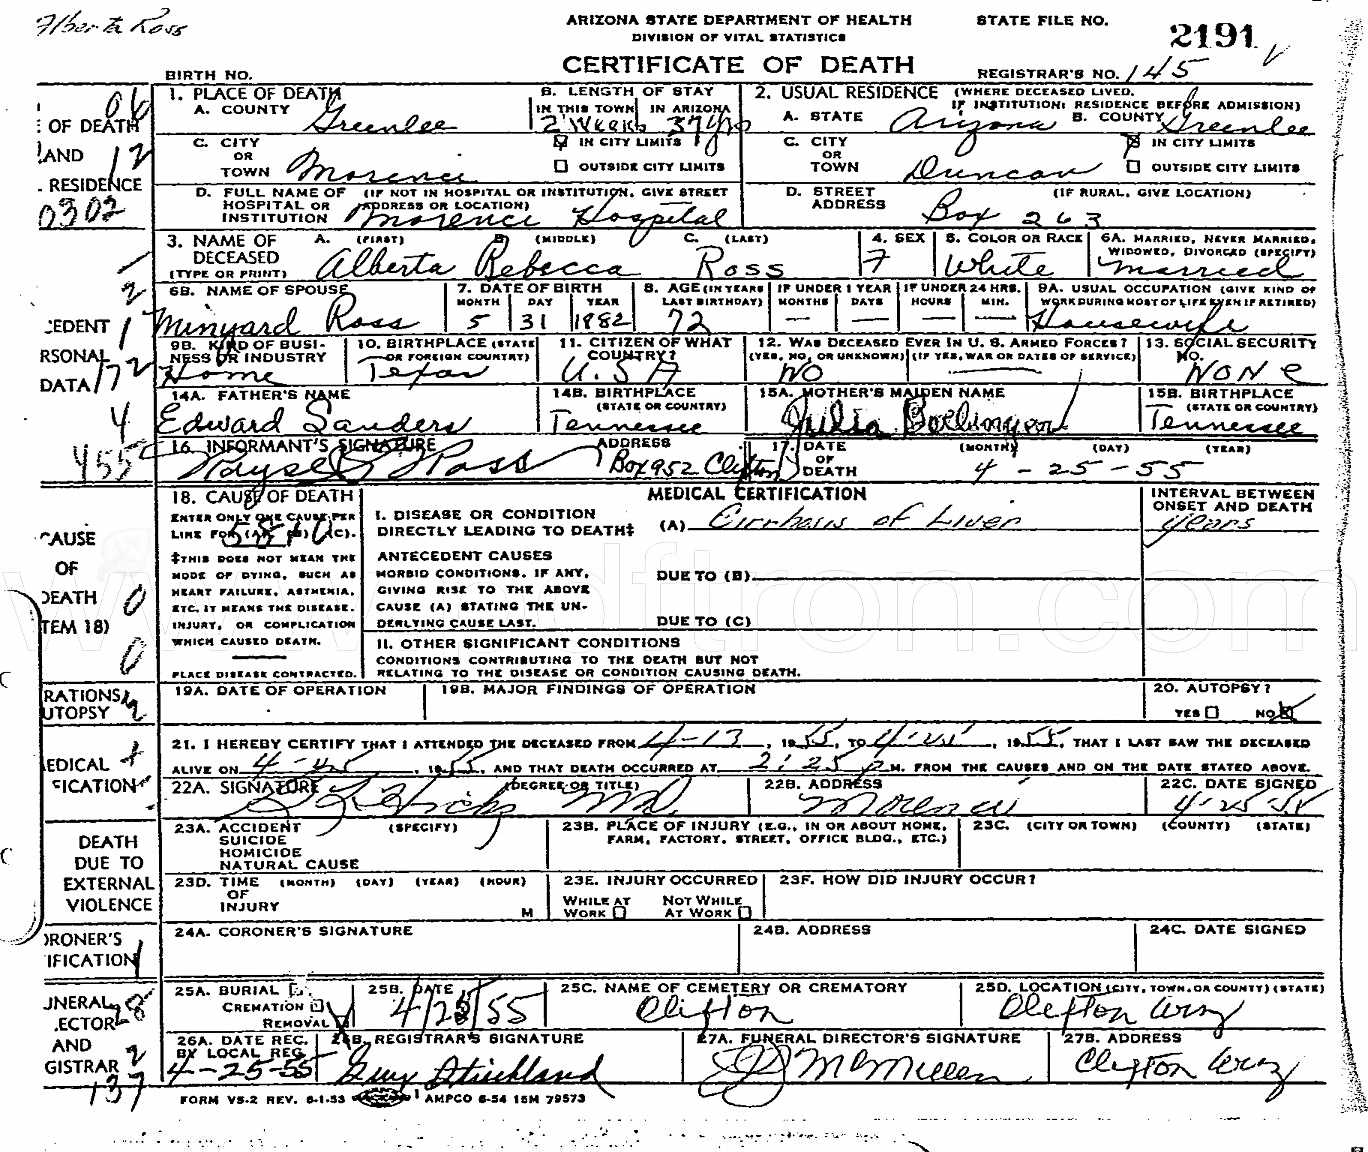 Alberta Ross
ARIZONA STATE DEPARTMENT OF HEALTH
DIVISION OF VITAL STATISTICS
CERTIFICATE OF DEATH
STATE FILE NO. 2191
BIRTH NO.
REGISTRAR'S NO. 145
1. PLACE OF DEATH
A. COUNTY Greenlee
B. LENGTH OF STAY
IN THIS TOWN 2 Weeks
IN ARIZONA 37 yrs
2. USUAL RESIDENCE (WHERE DECEASED LIVED. IF INSTITUTION: RESIDENCE BEFORE ADMISSION)
A. STATE Arizona
B. COUNTY Greenlee
C. CITY OR TOWN Morenci
IN CITY LIMITS
OUTSIDE CITY LIMITS
C. CITY OR TOWN Duncan
IN CITY LIMITS
OUTSIDE CITY LIMITS
D. FULL NAME OF HOSPITAL OR INSTITUTION (IF NOT IN HOSPITAL OR INSTITUTION, GIVE STREET ADDRESS OR LOCATION) Morenci Hospital
D. STREET ADDRESS (IF RURAL, GIVE LOCATION) Box 263
E OF DEATH
AND
RESIDENCE
06
12
0302
3. NAME OF DECEASED (TYPE OR PRINT)
A. (FIRST) Alberta
B. (MIDDLE) Rebecca
C. (LAST) Ross
4. SEX F
5. COLOR OR RACE White
6A. MARRIED, NEVER MARRIED, WIDOWED, DIVORCED (SPECIFY) Married
6B. NAME OF SPOUSE Minyard Ross
7. DATE OF BIRTH
MONTH 5
DAY 31
YEAR 1882
8. AGE (IN YEARS LAST BIRTHDAY) 72
IF UNDER 1 YEAR
MONTHS —
DAYS —
IF UNDER 24 HRS.
HOURS —
MIN. —
9A. USUAL OCCUPATION (GIVE KIND OF WORK DURING MOST OF LIFE EVEN IF RETIRED) Housewife
CEDENT
RSONAL
DATA
2
1
172
4
455
9B. KIND OF BUSINESS OR INDUSTRY Home
10. BIRTHPLACE (STATE OR FOREIGN COUNTRY) Texas
11. CITIZEN OF WHAT COUNTRY? U.S.A
12. WAS DECEASED EVER IN U. S. ARMED FORCES?
(YES, NO, OR UNKNOWN) NO
(IF YES, WAR OR DATES OF SERVICE) —
13. SOCIAL SECURITY NO. None
14A. FATHER'S NAME Edward Sanders
14B. BIRTHPLACE (STATE OR COUNTRY) Tennessee
15A. MOTHER'S MAIDEN NAME Julia
15B. BIRTHPLACE (STATE OR COUNTRY) Tennessee
16. INFORMANT'S SIGNATURE Ross
ADDRESS Box 952 Clifton
17. DATE OF DEATH (MONTH) (DAY) (YEAR) 4-25-55
18. CAUSE OF DEATH
ENTER ONLY ONE CAUSE PER LINE FOR (A), (B) (C).
5810
‡THIS DOES NOT MEAN THE MODE OF DYING, SUCH AS HEART FAILURE, ASTHENIA, ETC. IT MEANS THE DISEASE, INJURY, OR COMPLICATION WHICH CAUSED DEATH.
PLACE DISEASE CONTRACTED.
MEDICAL CERTIFICATION
INTERVAL BETWEEN ONSET AND DEATH
I. DISEASE OR CONDITION DIRECTLY LEADING TO DEATH‡ (A) Cirrhosis of Liver
years
ANTECEDENT CAUSES
MORBID CONDITIONS, IF ANY, GIVING RISE TO THE ABOVE CAUSE (A) STATING THE UNDERLYING CAUSE LAST.
DUE TO (B)
DUE TO (C)
II. OTHER SIGNIFICANT CONDITIONS
CONDITIONS CONTRIBUTING TO THE DEATH BUT NOT RELATING TO THE DISEASE OR CONDITION CAUSING DEATH.
CAUSE
OF
DEATH
(ITEM 18)
0
0
www.pdftron.com
RATIONS
UTOPSY
2
19A. DATE OF OPERATION
19B. MAJOR FINDINGS OF OPERATION
20. AUTOPSY?
YES
NO
EDICAL
FICATION
21. I HEREBY CERTIFY THAT I ATTENDED THE DECEASED FROM 4-13, 1955, TO 4-25, 1955, THAT I LAST SAW THE DECEASED
ALIVE ON 4-25, 1955, AND THAT DEATH OCCURRED AT 2:25 P M. FROM THE CAUSES AND ON THE DATE STATED ABOVE.
22A. SIGNATURE (DEGREE OR TITLE) MD.
22B. ADDRESS Morenci
22C. DATE SIGNED 4-25-55
DEATH
DUE TO
EXTERNAL
VIOLENCE
23A. ACCIDENT SUICIDE HOMICIDE NATURAL CAUSE (SPECIFY)
23B. PLACE OF INJURY (E.G., IN OR ABOUT HOME, FARM, FACTORY, STREET, OFFICE BLDG., ETC.)
23C. (CITY OR TOWN) (COUNTY) (STATE)
23D. TIME OF INJURY (MONTH) (DAY) (YEAR) (HOUR) M
23E. INJURY OCCURRED
WHILE AT WORK
NOT WHILE AT WORK
23F. HOW DID INJURY OCCUR?
ORONER'S
IFICATION
24A. CORONER'S SIGNATURE
24B. ADDRESS
24C. DATE SIGNED
UNERAL
ECTOR
AND
GISTRAR
28
2
137
25A. BURIAL
CREMATION
REMOVAL
25B. DATE 4/25/55
25C. NAME OF CEMETERY OR CREMATORY Clifton
25D. LOCATION (CITY, TOWN, OR COUNTY) (STATE) Clifton Ariz
26A. DATE REC. BY LOCAL REG. 4-25-55
26B. REGISTRAR'S SIGNATURE Guy Strickland
27A. FUNERAL DIRECTOR'S SIGNATURE McMillen
27B. ADDRESS Clifton Ariz
FORM VS-2 REV. 6-1-53
AMPCO 6-54 15M 79573